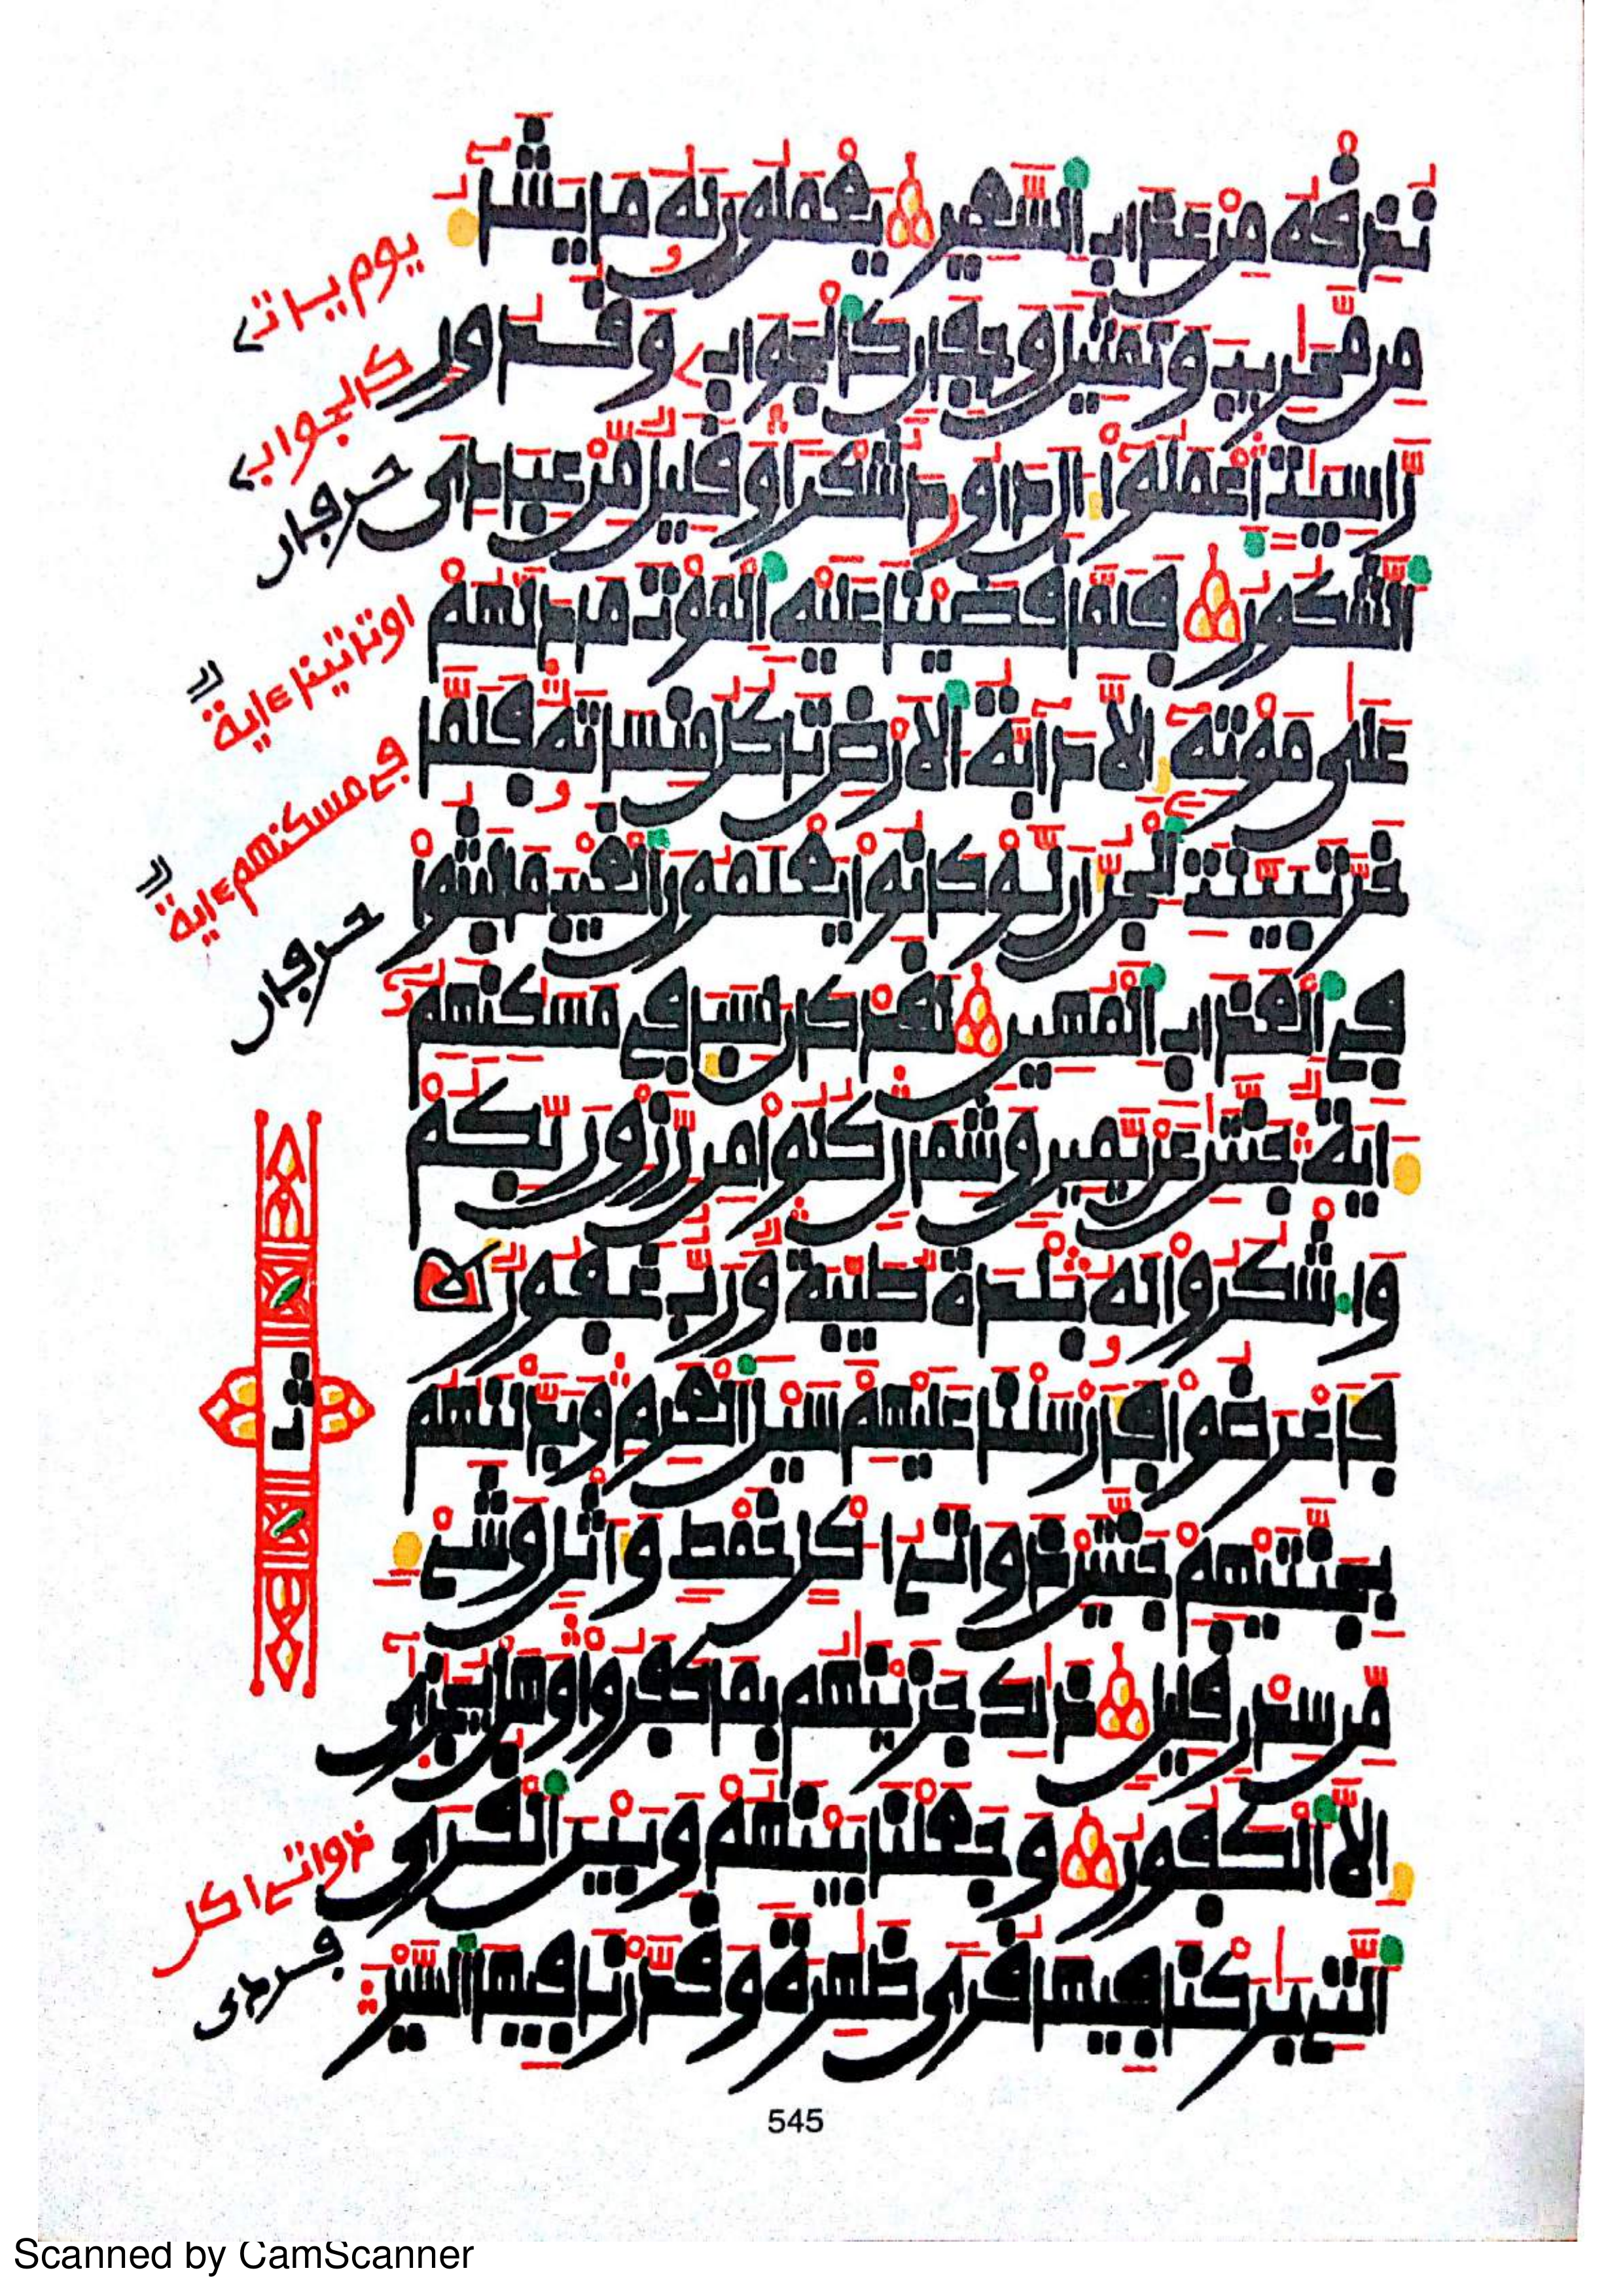 نذقه من عذاب السعير يعملون له ما يشا
من محريب وتمثيل وجفان كالجواب وقدور
راسيت اعملوا ءال داود شكرا وقليل من عبادي
الشكور فلما قضينا عليه الموت ما دلهم
على موته إلا دابة الارض تاكل منساته فلما
خر تبينت الجن ان لو كانوا يعلمون الغيب ما لبثوا
في العذاب المهين لقد كان لسبإ في مسكنهم
ءاية جنتن عن يمين وشمال كلوا من رزق ربكم
واشكروا له بلدة طيبة ورب غفور
فاعرضوا فارسلنا عليهم سيل العرم وبدلنهم
بجنتيهم جنتين ذواتي اكل خمط واثل وشيء
من سدر قليل ذلك جزينهم بما كفروا وهل يجزى
إلا الكفور وجعلنا بينهم وبين القرى
التي بركنا فيها قرى ظهرة وقدرنا فيها السير
يوم يات
كالجواب
حرفان
ءاية
في مسكنهم ءاية
حرفان
ذواتي اكل
545
Scanned by CamScanner